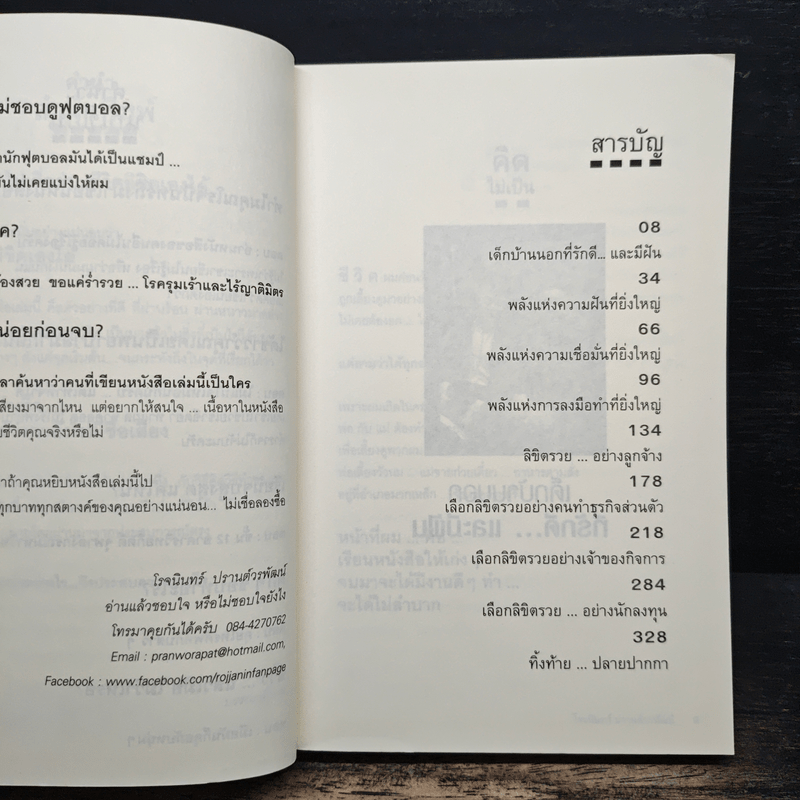 ม่ชอบดูฟุตบอล?
นักฟุตบอลมันได้เป็นแชมป์ ...
ันไม่เคยแบ่งให้ผม
ค?
้องสวย ขอแค่ร่ำรวย ... โรครุมเร้าและไร้ญาติมิตร
น่อยก่อนจบ?
ลาค้นหาว่าคนที่เขียนหนังสือเล่มนี้เป็นใคร
สียงมาจากไหน แต่อยากให้สนใจ ... เนื้อหาในหนังสือ
ชีวิตคุณจริงหรือไม่
าถ้าคุณหยิบหนังสือเล่มนี้ไป
ทุกบาททุกสตางค์ของคุณอย่างแน่นอน... ไม่เชื่อลองซื้อ
โรจนินทร์ ปรานต์วรพัฒน์
อ่านแล้วชอบใจ หรือไม่ชอบใจยังไง
โทรมาคุยกันได้ครับ 084-4270762
Email : pranworapat@hotmail.com,
Facebook : www.facebook.com/rojjaninfanpage
สารบัญ
08
เด็กบ้านนอกที่รักดี... และมีฝัน
34
พลังแห่งความฝันที่ยิ่งใหญ่
66
พลังแห่งความเชื่อมั่นที่ยิ่งใหญ่
96
พลังแห่งการลงมือทำที่ยิ่งใหญ่
134
ลิขิตรวย ... อย่างลูกจ้าง
178
เลือกลิขิตรวยอย่างคนทำธุรกิจส่วนตัว
218
เลือกลิขิตรวยอย่างเจ้าของกิจการ
284
เลือกลิขิตรวย ... อย่างนักลงทุน
328
ทิ้งท้าย ... ปลายปากกา